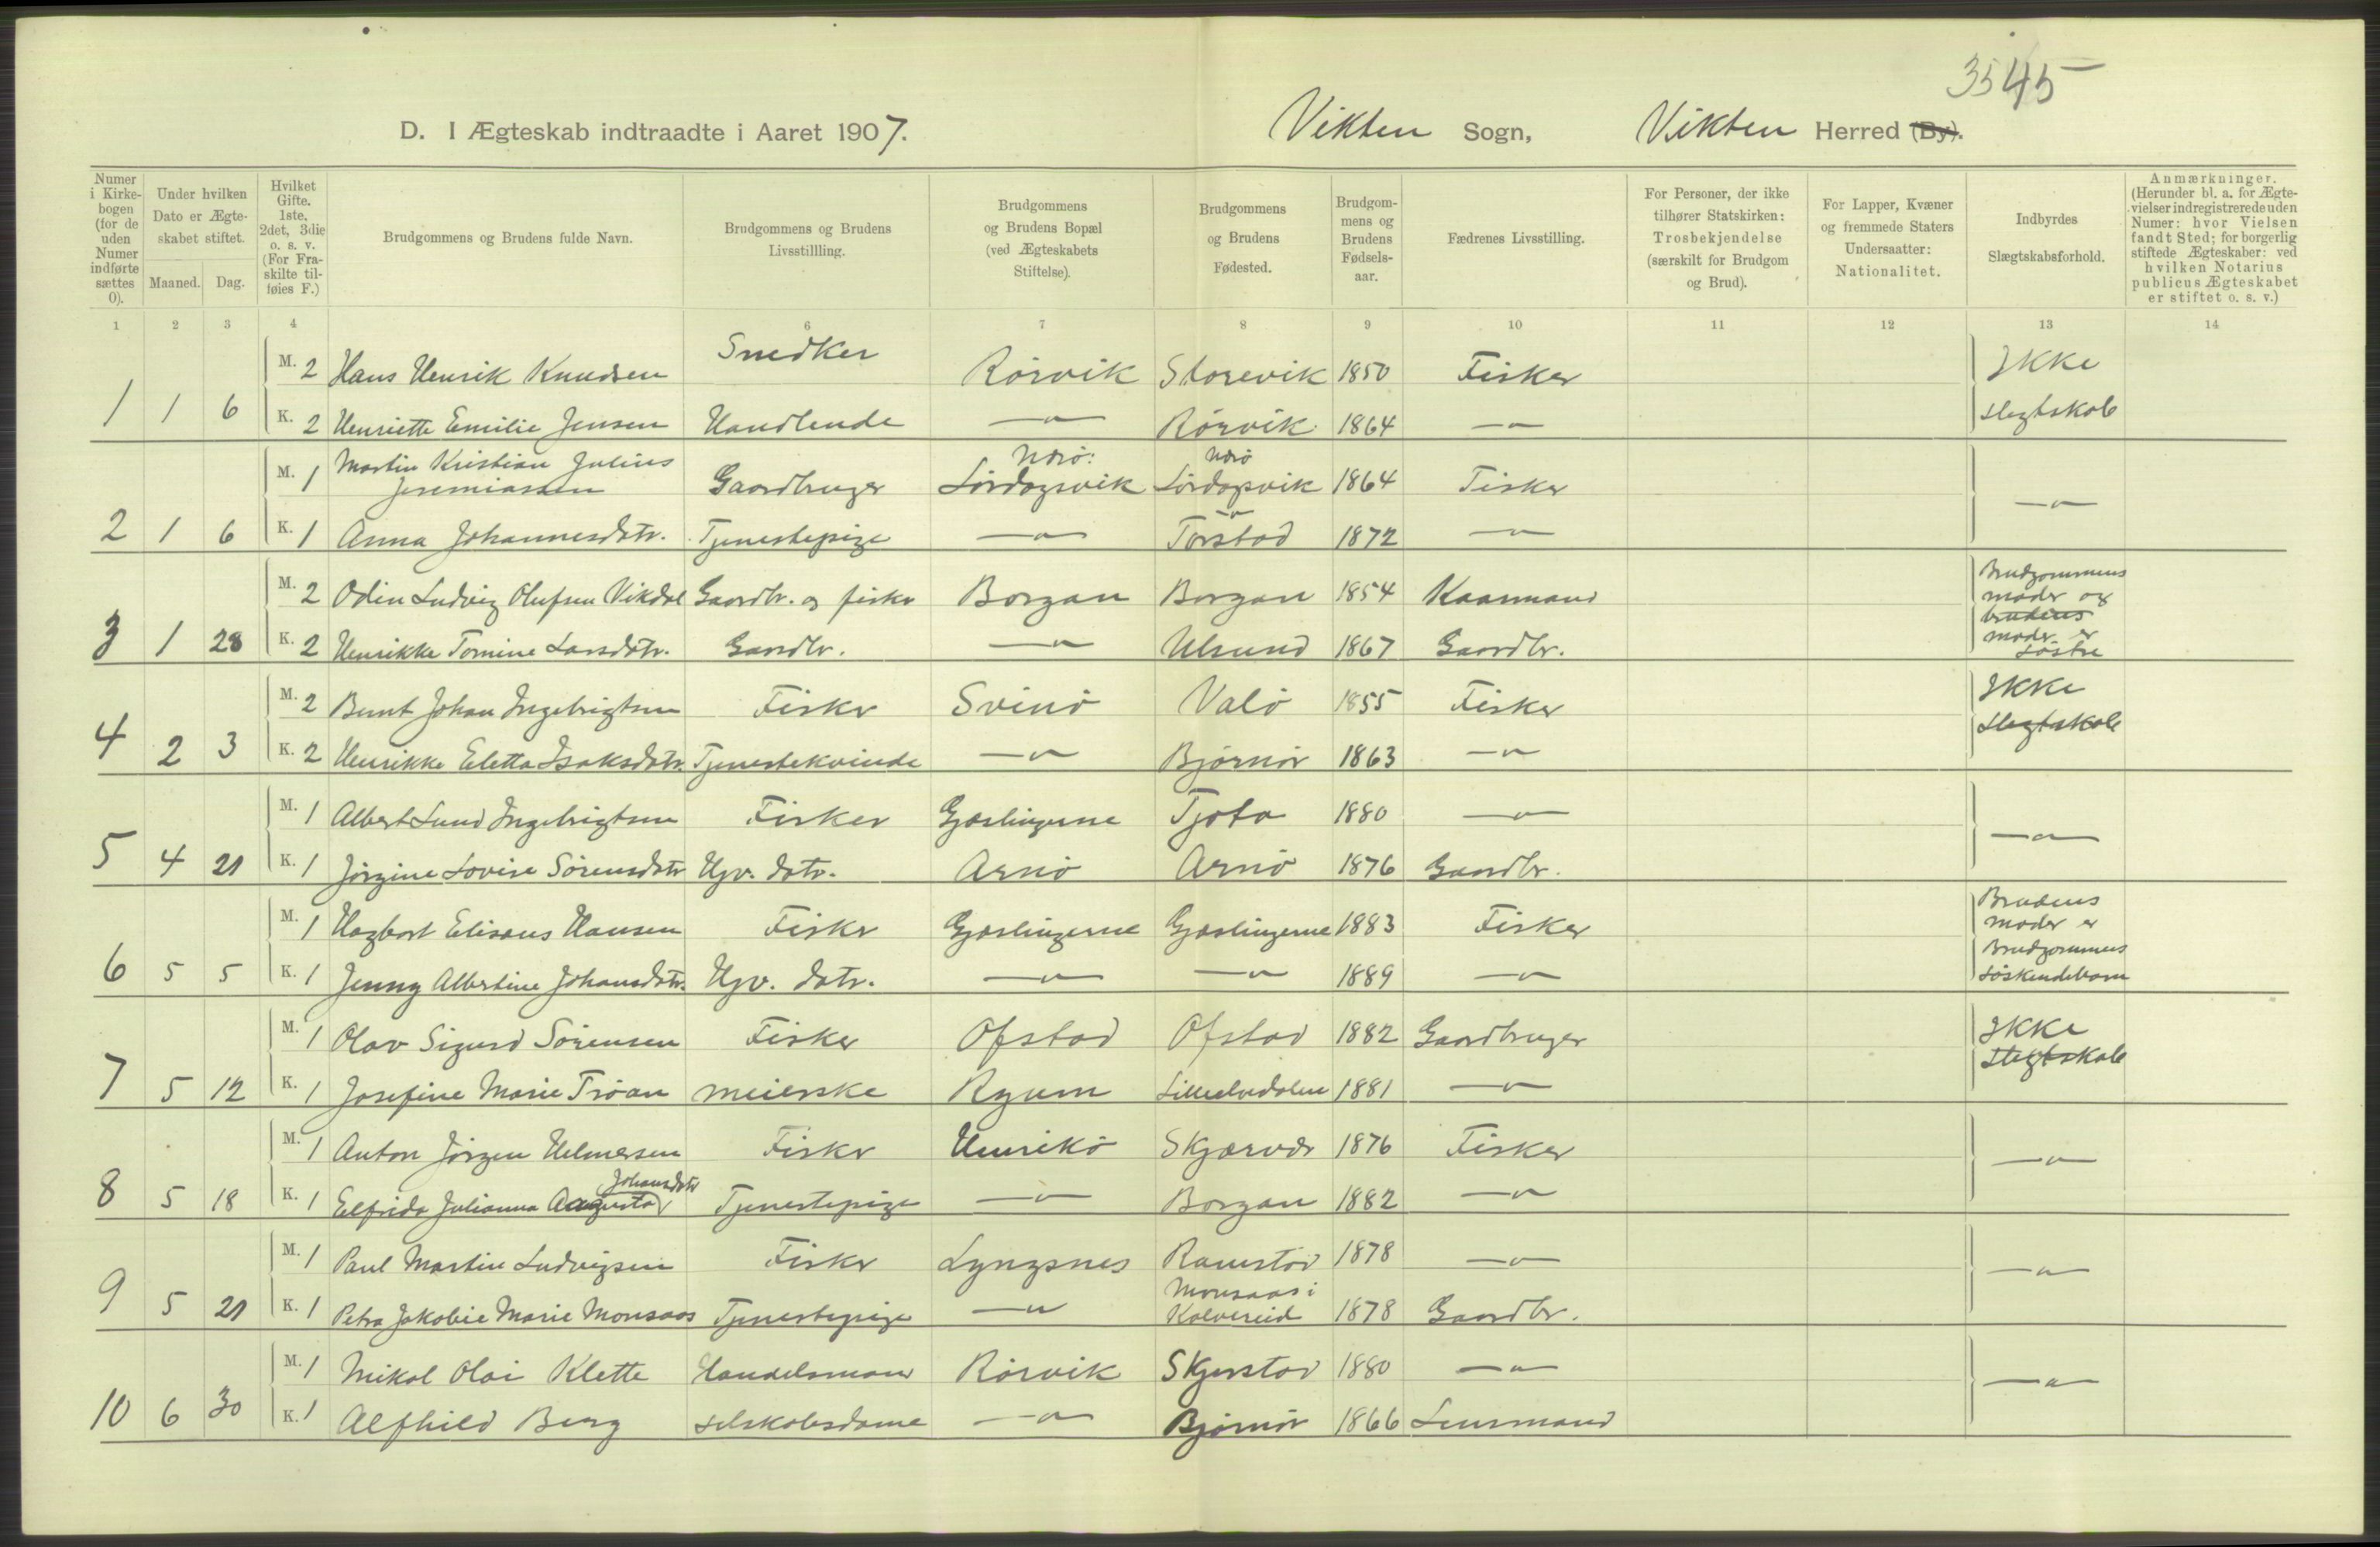 3545
D. I Ægteskab indtraadte i Aaret 1907. Vikten Sogn, Vikten Herred (By).
Numer i Kirke-bogen (for de uden Numer indførte sættes 0).
Under hvilken Dato er Ægte-skabet stiftet.
Maaned. Dag.
Hvilket Gifte. 1ste, 2det, 3die o. s. v. (For Fra-skilte til-føies F.)
Brudgommens og Brudens fulde Navn.
Brudgommens og Brudens Livsstillling.
Brudgommens og Brudens Bopæl (ved Ægteskabets Stiftelse).
Brudgommens og Brudens Fødested.
Brudgom-mens og Brudens Fødsels-aar.
Fædrenes Livsstilling.
For Personer, der ikke tilhører Statskirken: Trosbekjendelse (særskilt for Brudgom og Brud).
For Lapper, Kvæner og fremmede Staters Undersaatter: Nationalitet.
Indbyrdes Slægtskabsforhold.
Anmærkninger. (Herunder bl. a. for Ægte-vielser indregistrerede uden Numer: hvor Vielsen fandt Sted; for borgerlig stiftede Ægteskaber: ved hvilken Notarius publicus Ægteskabet er stiftet o. s. v.)
1 2 3 4 6 7 8 9 10 11 12 13 14
M. 2 Hans Henrik Knudsen Snedker Rörvik Storevik 1850 Fisker Ikke
1 1 6 K. 2 Henriette Emilie Jensen Handlende —"— Rörvik 1864 —"— slegtskab
M. 1 Martin Kristian Julius Jeremiassen Gaardbruger Nærö: Lördagsvik Nærö Lördagsvik 1864 Fisker —"—
2 1 6 K. 1 Anna Johannesdatr. Tjenestepige —"— —"— Torstad 1872 —"—
M. 2 Odin Ludvig Olufsen Vikdal Gaardbr. og fisker Borgan Borgan 1854 Kaarmand Brudgommens moder og brudens moder er söstre
3 1 28 K. 2 Henrikke Tomine Larsdatr. Gaardbr. —"— Ulsund 1867 Gaardbr.
M. 2 Bernt Johan Ingebrigtsen Fisker Svinö Valö 1855 Fisker Ikke
4 2 3 K. 2 Henrikke Eletta Isaksdatr. Tjenestekvinde —"— Björnör 1863 —"— slegtskab
M. 1 Albert Lund Ingebrigtsen Fisker Gjæslingerne Tjøta 1880 —"— —"—
5 4 21 K. 1 Jörgine Lovise Sörensdatr Hjv. datr. Arnö Arnö 1876 Gaardbr.
M. 1 Hagbart Eliseus Hansen Fisker Gjæslingerne Gjæslingerne 1883 Fisker Brudens moder er Brudgommens söskendebarn
6 5 5 K. 1 Jenny Albertine Johansdatr. Hjv. datr. —"— —"— 1889 —"—
M. 1 Olav Sigurd Sörensen Fisker Ofstad Ofstad 1882 Gaardbruger Ikke
7 5 12 K. 1 Josefine Marie Tröan meierske Ryum Lilleelvdalen 1881 —"— slegtskab
M. 1 Anton Jörgen Helmersen Fisker Henrikö Skjærvær 1876 Fisker —"—
8 5 18 K. 1 Elfrida Julianna Augusta Johansdatr Tjenestepige —"— Borgan 1882 —"—
M. 1 Paul Martin Ludvigsen Fisker Lyngsnes Ramstad 1878 —"— —"—
9 5 21 K. 1 Petra Jakobie Marie Monsaas Tjenestepige —"— Monsaas i Kolvereid 1878 Gaardbr.
M. 1 Mikal Olai Klette Handelsmand Rörvik Skjerstad 1880 —"— —"—
10 6 30 K. 1 Alfhild Berg selskabsdame —"— Björnör 1866 Lensmand